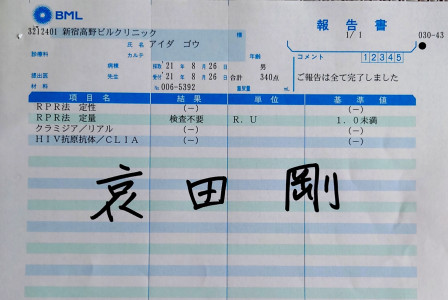 BML
報告書
3212401 新宿高野ビルクリニック 様 1/1 030-43
氏名 アイダ ゴウ
診療科 カルテ 年齢 コメント 12345
病棟 採'21年8月26日 男
提出医 先生 受'21年8月26日 合計 340点 ご報告は全て完了しました
材料 No 006-5392
項目名 結果 単位 基準値
RPR法 定性 (-) (-)
RPR法 定量 検査不要 R.U 1.0未満
クラミジア/リアル (-) (-)
HIV抗原抗体/CLIA (-) (-)
哀田 剛